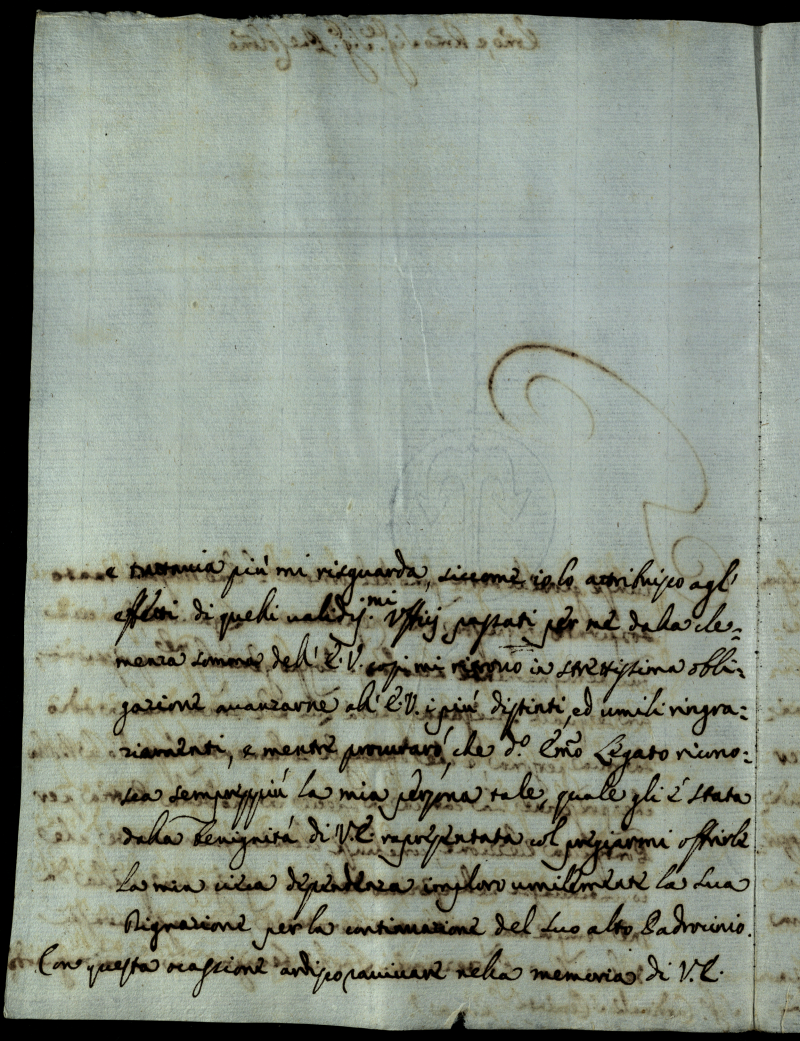 e tuttavia più mi risguarda, siccome io lo attribuisco agl'
effetti di quelli validis.mi Ufficij passati per me dalla cle=
menza somma dell' E.V. così mi ritrovo in strettissima obbli=
gazione avanzarne all' E.V. i più distinti, ed umili ringra=
ziamenti, e mentre procurarò, che d.o Emo Legato ricono=
sca semprepiù la mia persona tale, quale gli è stata
dalla Benignità di V.E. rapresentata col pregiarmi offrirle
la mia cieca dependenza imploro umilmente la sua
Dignazione per la continuazione del suo alto Padrocinio.
Con questa ocassione ardisco ravivare nella memoria di V.E.